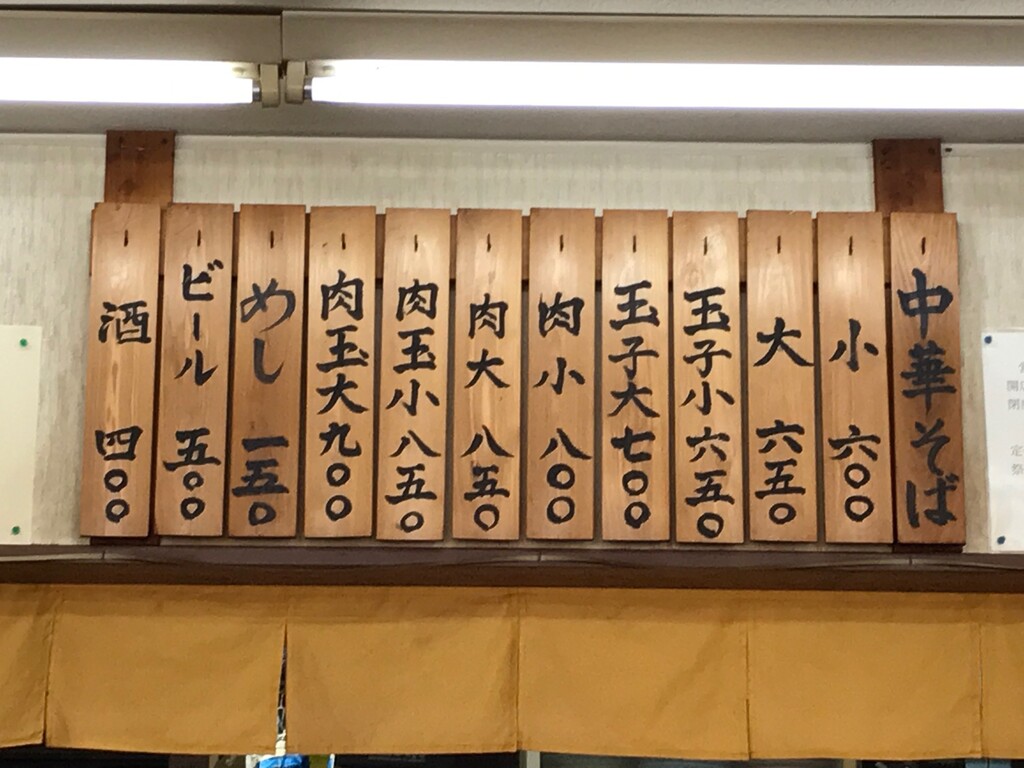 中華そば
小 六〇〇
大 六五〇
玉子小 六五〇
玉子大 七〇〇
肉小 八〇〇
肉大 八五〇
肉玉小 八五〇
肉玉大 九〇〇
めし 一五〇
ビール 五〇〇
酒 四〇〇